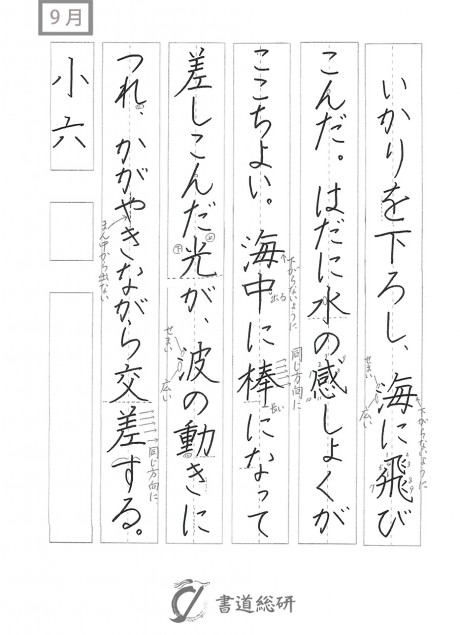 9月
いかりを下ろし、海に飛び
こんだ。はだに水の感しょくが
ここちよい。海中に棒になって
差しこんだ光が、波の動きに
つれ、かがやきながら交差する。
小六
下がらないように
せまい
広い
同じ方向に
下がらないように
出る
長い
せまい
広い
同じ方向に
まん中から出ない
書道総研